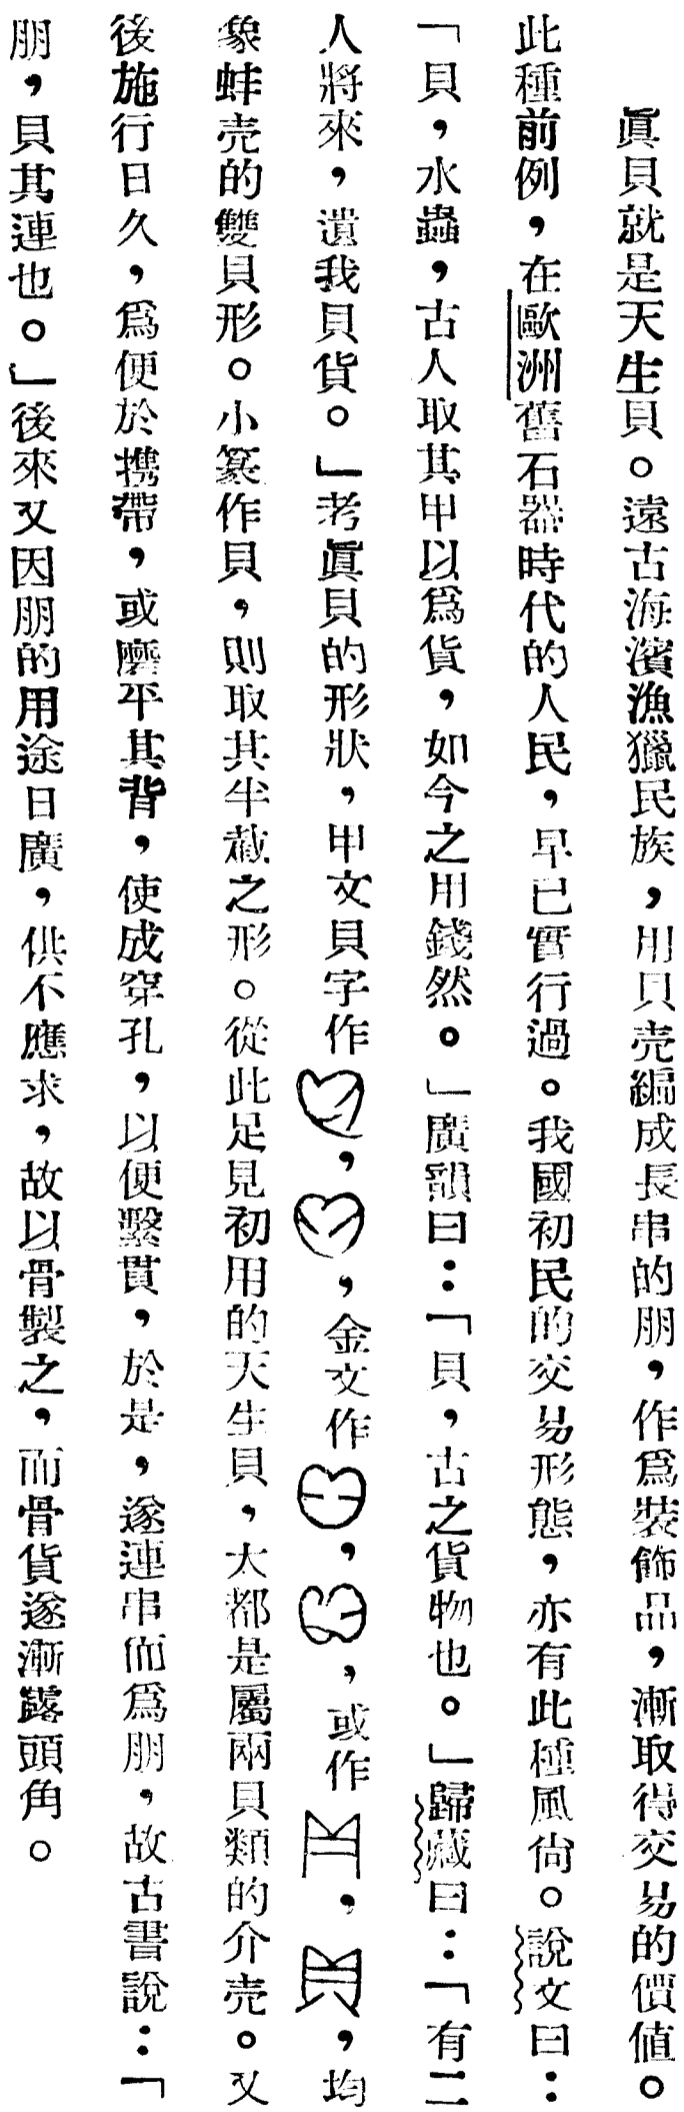 眞貝就是天生貝。遠古海濱漁獵民族，用貝壳編成長串的朋，作爲裝飾品，漸取得交易的價値。
此種前例，在歐洲舊石器時代的人民，早已實行過。我國初民的交易形態，亦有此種風尙。說文曰：
「貝，水蟲，古人取其甲以爲貨，如今之用錢然。」廣韻曰：「貝，古之貨物也。」歸藏曰：「有二
人將來，遺我貝貨。」考眞貝的形狀，甲文貝字作，，金文作，，或作，，均
象蚌壳的雙貝形。小篆作貝，則取其半截之形。從此足見初用的天生貝，大都是屬兩貝類的介壳。又
後施行日久，爲便於携帶，或磨平其背，使成穿孔，以便繫貫，於是，遂連串而爲朋，故古書說：「
朋，貝其連也。」後來又因朋的用途日廣，供不應求，故以骨製之，而骨貨遂漸露頭角。